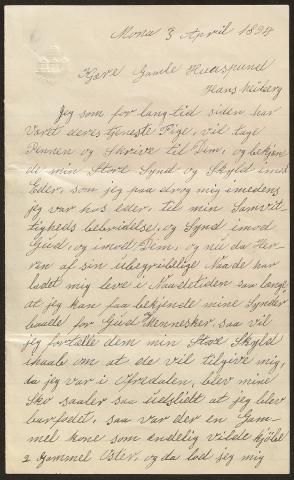 Mona 3 April 1898
Kjære Gamle Huusbund
Hans Melberg
Jeg som for lang tid siden har
været deres tjeneste Pige, vil tage
Pennen og Skrive til Dem, og bekjen
de min Store Synd og Skyld imod
Eder, som jeg paa drog mig imedens
jeg var hos eder, til min Samvit-
tigheds bebridelse, og Synd imod
Gud, og imod Dem, og nu da Her-
ren af sin ubegribelige Naade har
ladet mig leve i Naadetiden saa længe
at jeg kan faa bekjende mine Synder
baade for Gud & Mennesker, saa vil
jeg fortælle dem min Store Skyld
ihaab om at de vil tilgive mig,
da jeg var i Ofredalen, blev mine
Sko saaler saa udslidt at jeg blev
barfodet, saa var der en Gam-
mel kone som endelig vilde kjøbe
2 Gammel Oster, og da lod jeg mig